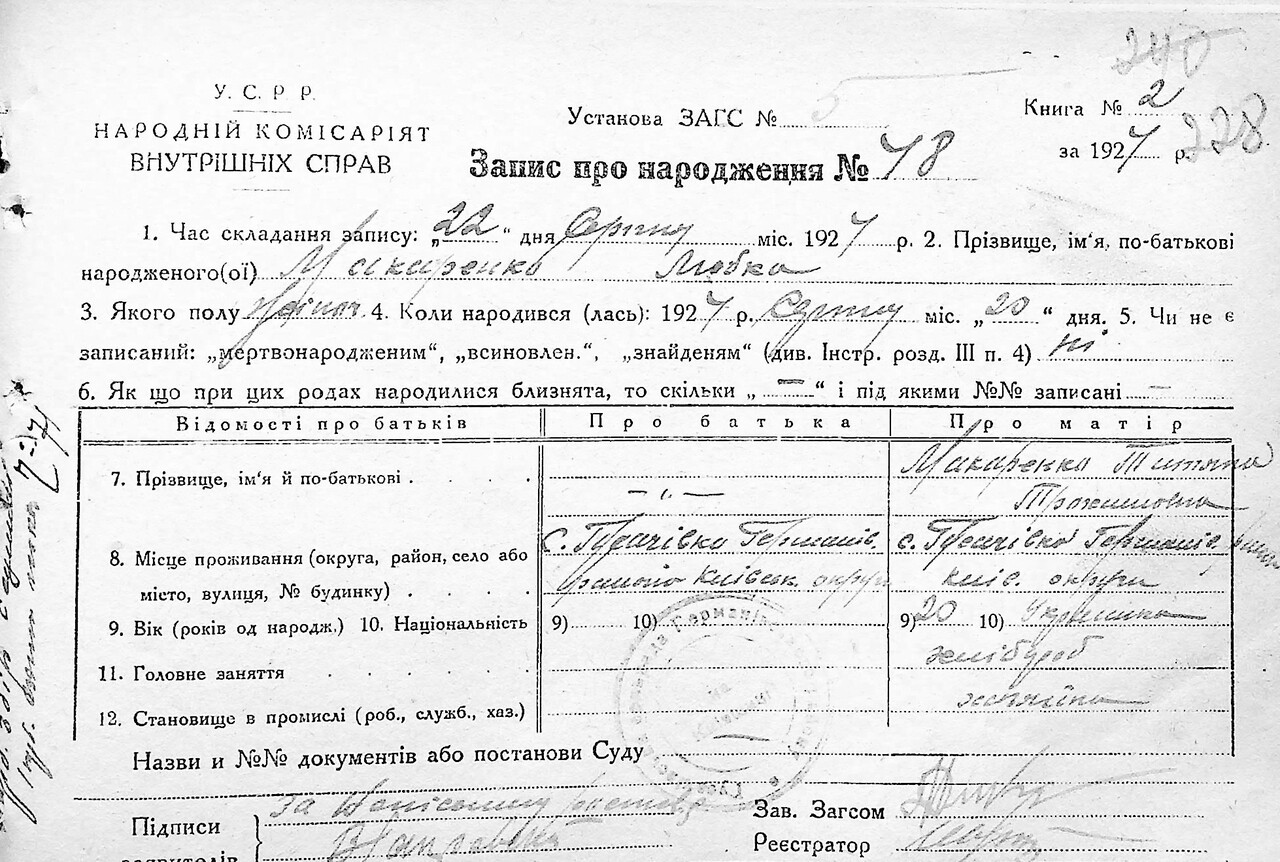 240
У. С. Р. Р.
НАРОДНІЙ КОМІСАРІЯТ
ВНУТРІШНІХ СПРАВ
Установа ЗАГС № 5
Книга № 2
за 1927 р.
228
Запис про народження № 78
1. Час складання запису: „22“ дня Серпня міс. 1927 р. 2. Прізвище, ім‘я, по-батькові
народженого(ої) Макаренко Любка
3. Якого полу жіноч. 4. Коли народився (лась): 1927 р. Серпня міс. „20“ дня. 5. Чи не є
записаний: „мертвонародженим“, „всиновлен.“, „знайденям“ (див. Інстр. розд. III п. 4) ні
6. Як що при цих родах народилися близнята, то скільки „—“ і під якими №№ записані —
Відомості про батьків Про батька Про матір
7. Прізвище, ім‘я й по-батькові — „ — Макаренко Титяна
8. Місце проживання (округа, район, село або с. Гусачівка Германів. с. Гусачівка Германів.
місто, вулиця, № будинку) Київськ. округи київ. округи
9. Вік (років од народж.) 10. Національність 9) 10) 9) 20 10) Українка
11. Головне заняття хлібороб
12. Становище в промислі (роб., служб., хаз.) хазяйка
Назви и №№ документів або постанови Суду
Підписи
заявителів
За
Зав. Загсом
Реєстратор